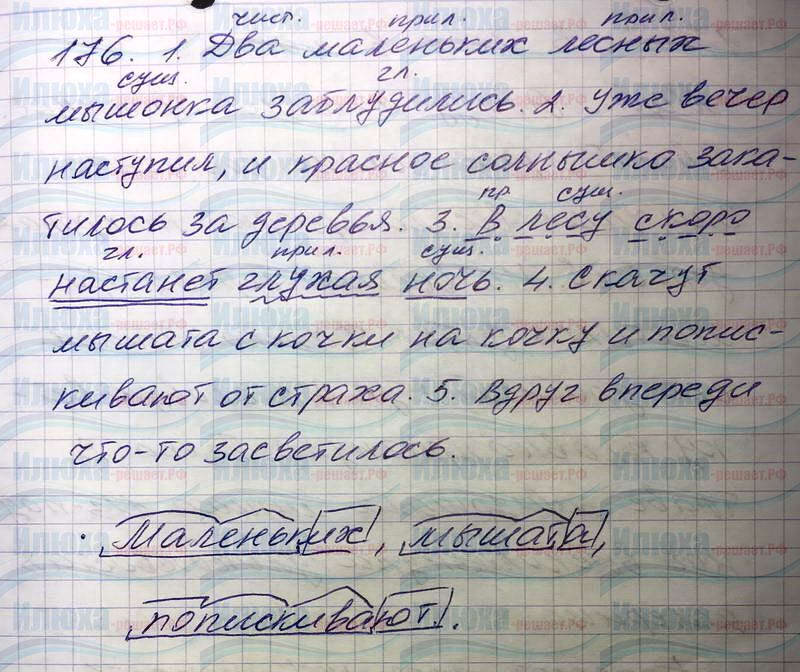 числ. прил. прил.
176. 1. Два маленьких лесных
сущ. гл.
мышонка заблудились. 2. Уже вечер
наступил, и красное солнышко зака-
пр. сущ.
тилось за деревья. 3. В лесу скоро
гл. прил. сущ.
настанет глухая ночь. 4. Скачут
мышата с кочки на кочку и попис-
кивают от страха. 5. Вдруг впереди
что-то засветилось.
Маленьких, мышата,
попискивают.
Илюха-решает.РФ